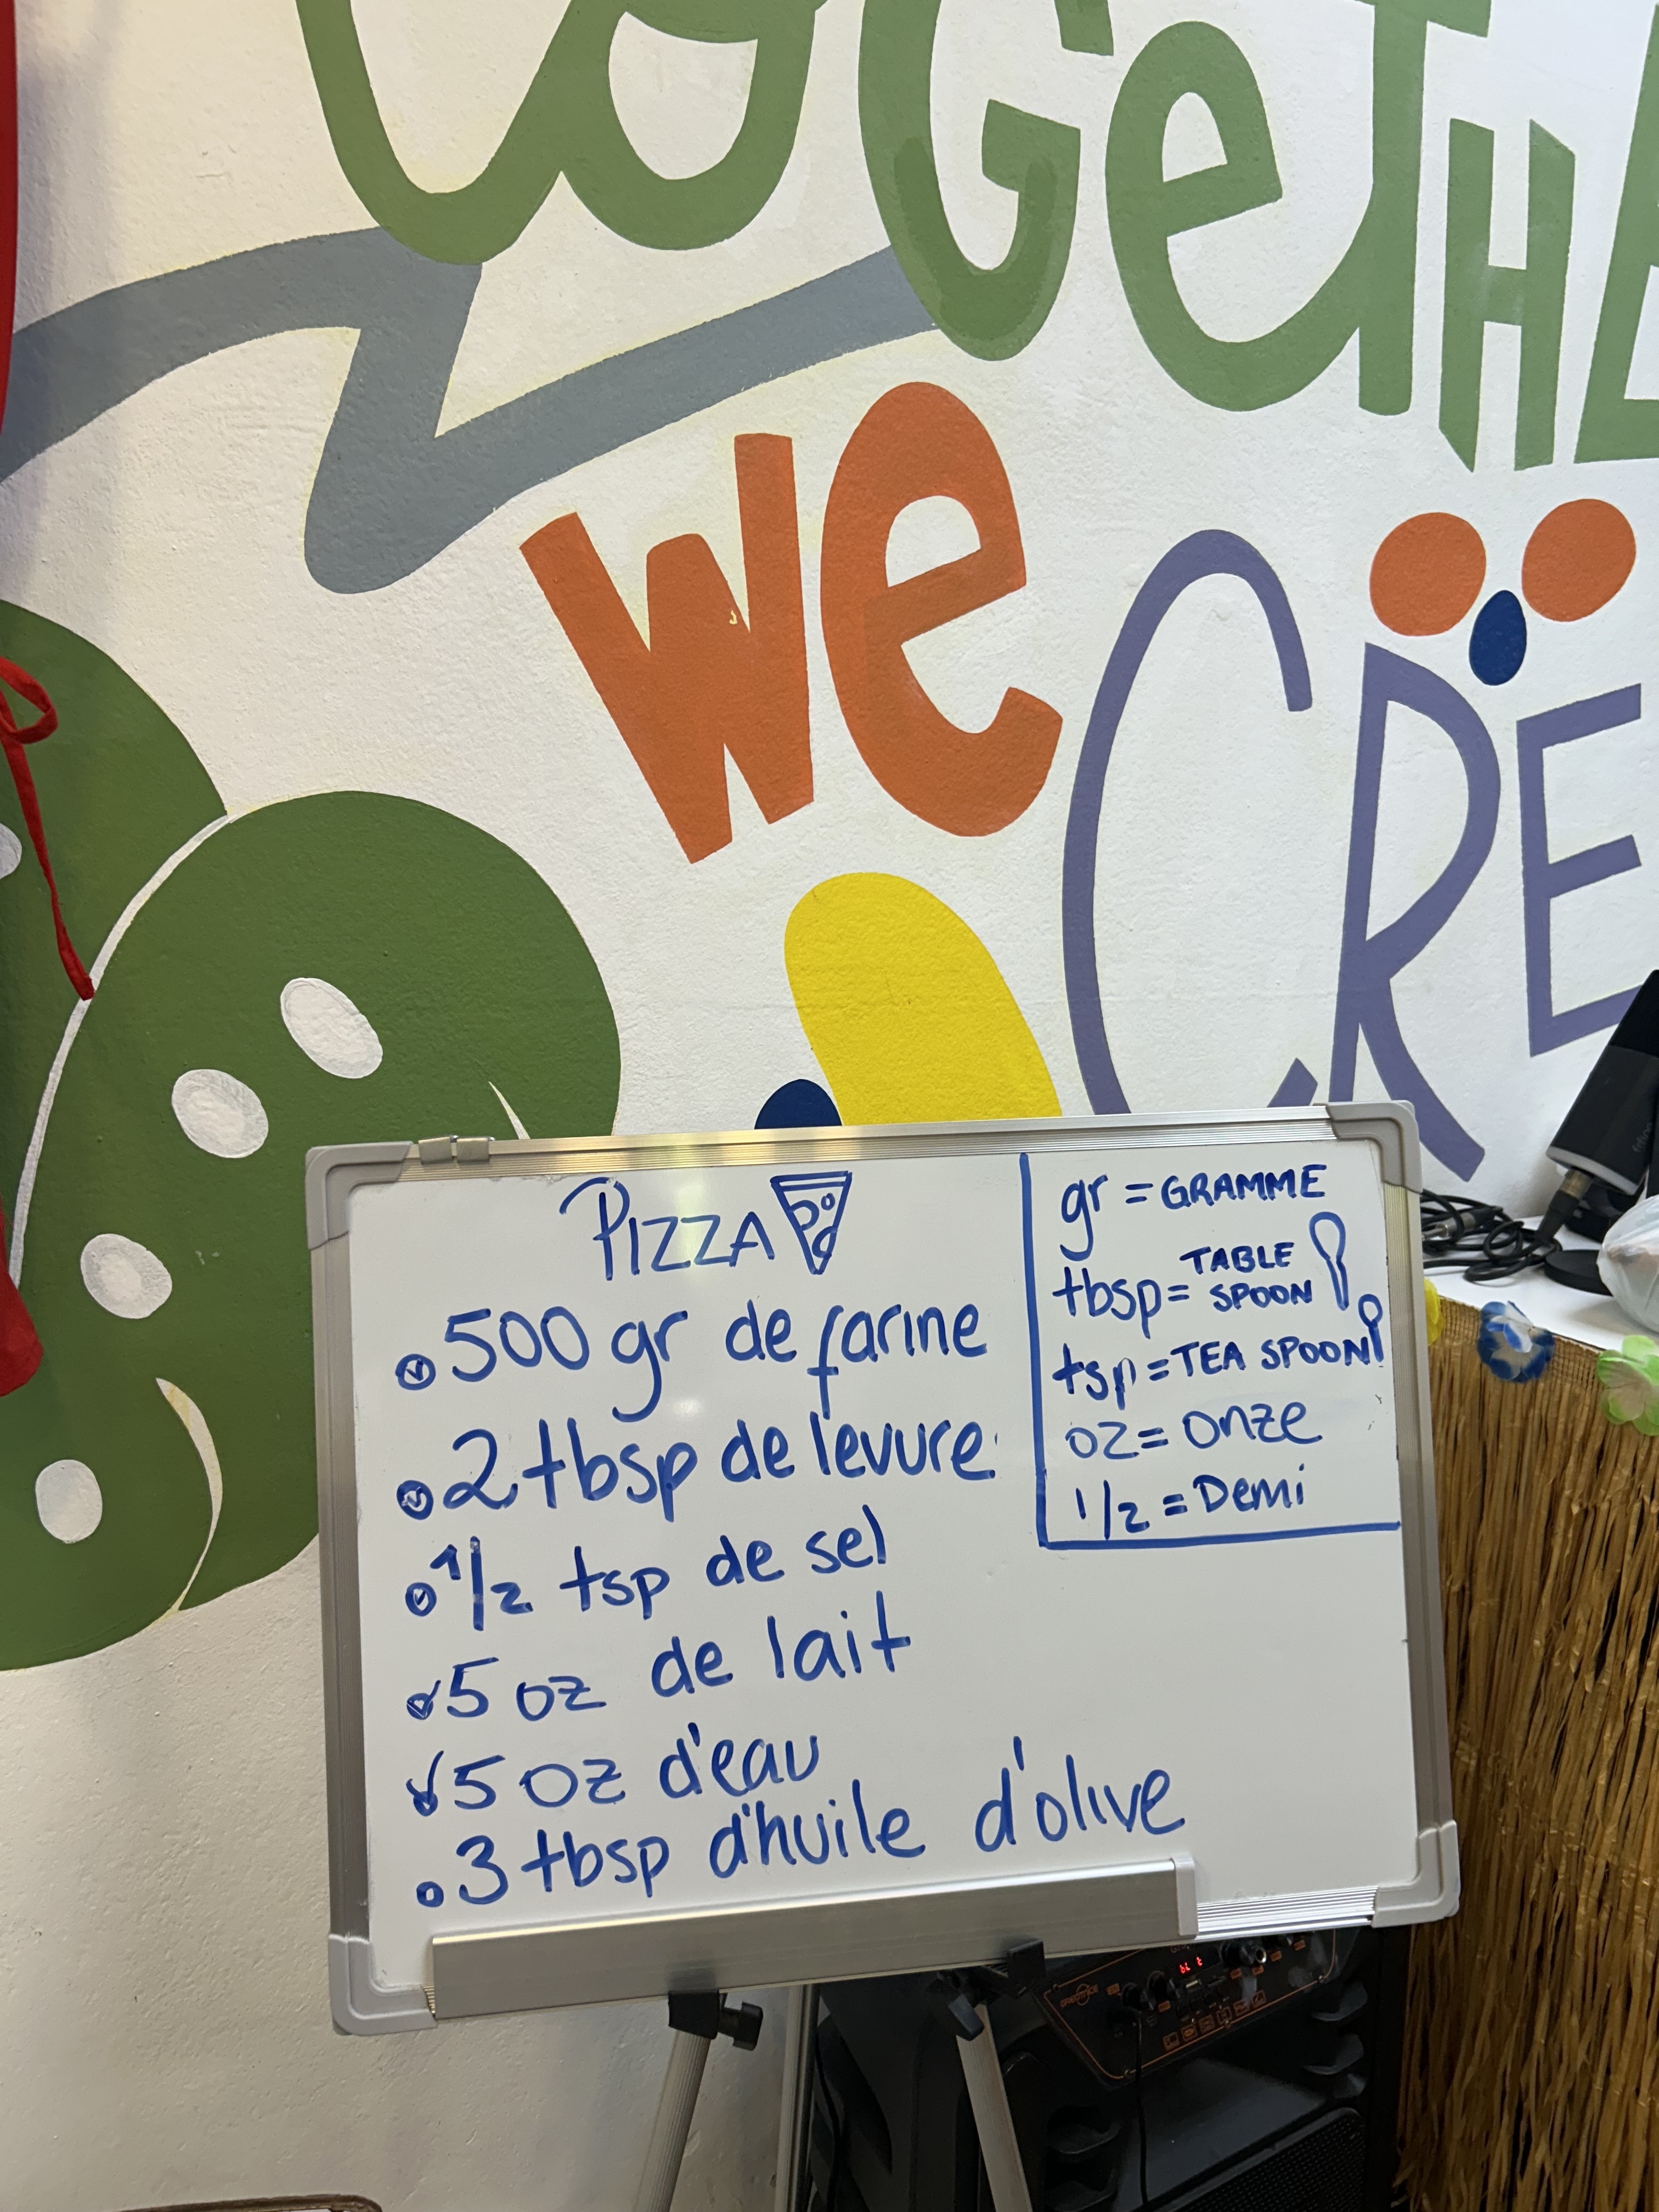 TOGETHE
we
CRE
PIZZA
500 gr de farine
2 tbsp de levure
1/2 tsp de sel
5 oz de lait
5 oz d'eau
3 tbsp d'huile d'olive
gr = GRAMME
tbsp = TABLE SPOON
tsp = TEA SPOON
oz = onze
1/2 = Demi